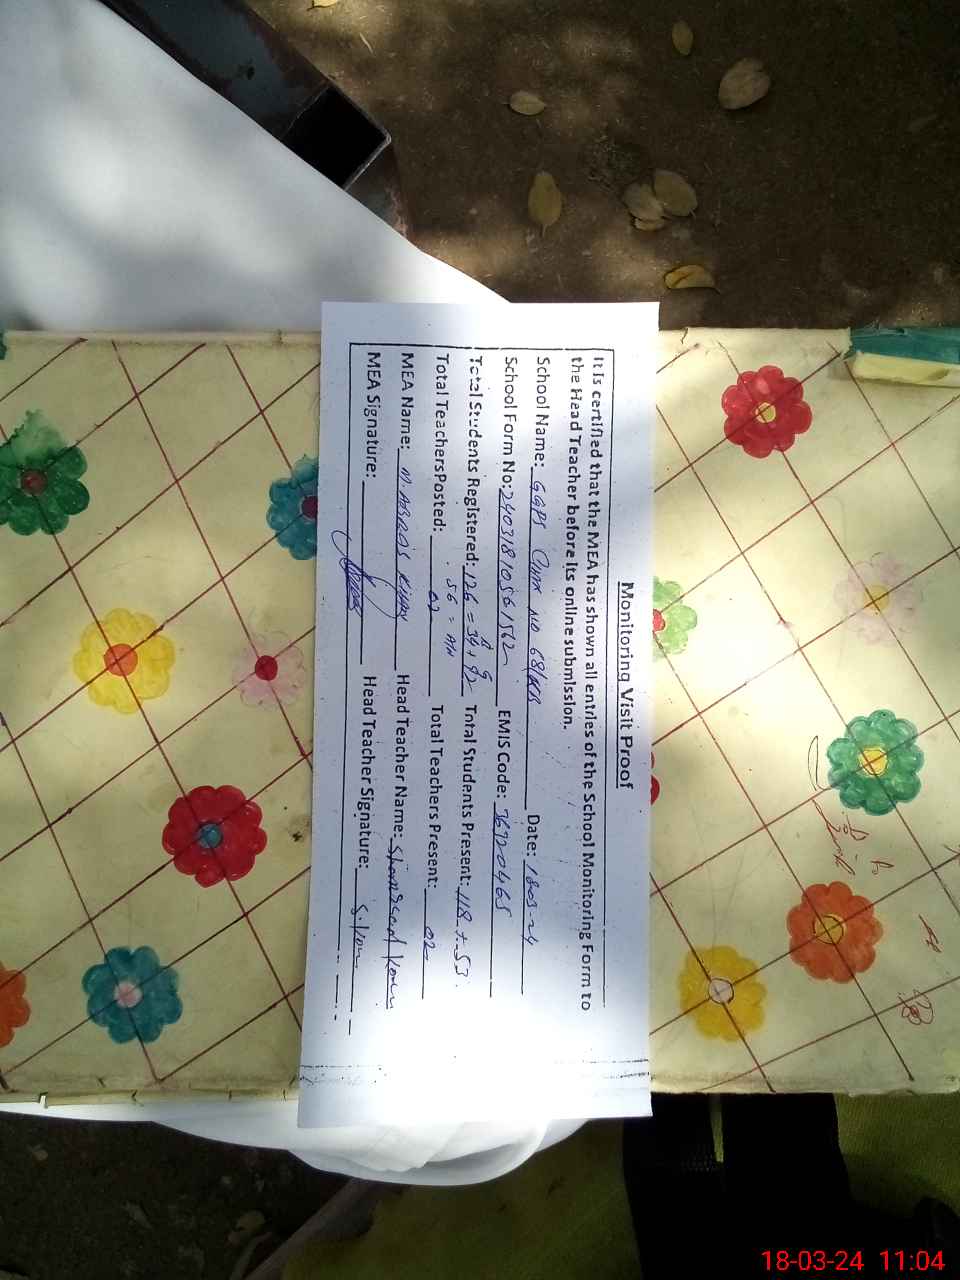 Monitoring Visit Proof
It is certified that the MEA has shown all entries of the School Monitoring Form to
the Head Teacher before its online submission.
School Name: GGPS Chak No 68/ Date: 18-03-24
School Form No: 24031810561562 EMIS Code: 36720465
Total Students Registered: 126 = 34 + 92 Total Students Present: 118 + 53
56 = A/N
Total TeachersPosted: 02 Total Teachers Present: 02
MEA Name: M. Head Teacher Name:
MEA Signature: Head Teacher Signature:
18-03-24 11:04